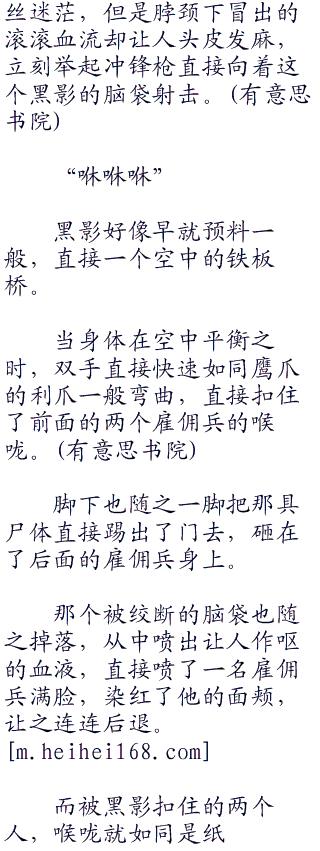 丝迷茫，但是脖颈下冒出的
滚滚血流却让人头皮发麻，
立刻举起冲锋枪直接向着这
个黑影的脑袋射击。(有意思
书院)
“咻咻咻”
黑影好像早就预料一
般，直接一个空中的铁板
桥。
当身体在空中平衡之
时，双手直接快速如同鹰爪
的利爪一般弯曲，直接扣住
了前面的两个雇佣兵的喉
咙。(有意思书院)
脚下也随之一脚把那具
尸体直接踢出了门去，砸在
了后面的雇佣兵身上。
那个被绞断的脑袋也随
之掉落，从中喷出让人作呕
的血液，直接喷了一名雇佣
兵满脸，染红了他的面颊，
让之连连后退。
[m.heihei168.com]
而被黑影扣住的两个
人，喉咙就如同是纸